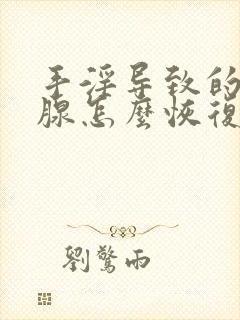 手淫导致的
腺怎麼恢復
劉驚雨